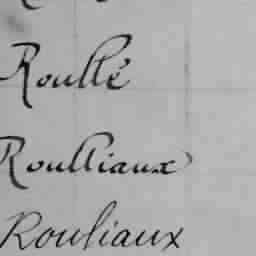 Roullé
Roulliaux
Rouliaux